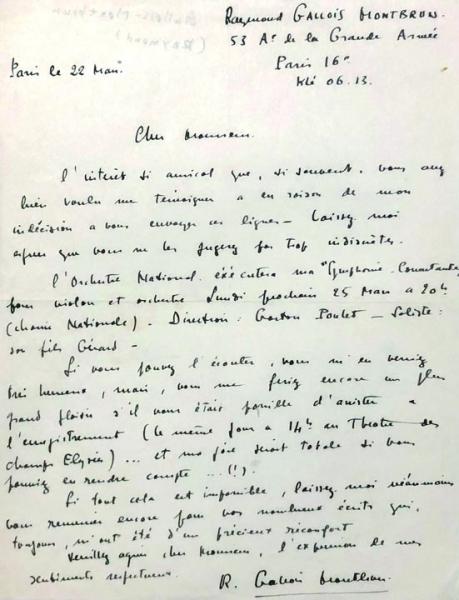 Raymond GALLOIS MONTBRUN.
53 Av de la Grande Armée
Paris 16e
Klé 06.13.
Paris le 22 Mars.
Cher Monsieur.
l'intérêt si amical que, si souvent, vous avez
bien voulu me témoigner a eu raison de mon
indécision a vous envoyer ces lignes - Laissez moi
espérer que vous ne les jugerez pas trop indiscrètes.
l'Orchestre National exécutera ma "Symphonie Concertante
pour violon et orchestre Lundi prochain 25 Mars a 20h
(chaine Nationale) - Direction : Gaston Poulet - Soliste :
son fils Gérard -
Si vous pouvez l'écouter, vous m'en verriez
très heureux, mais, vous me feriez encore un plus
grand plaisir s'il vous était possible d'assister a
l'enregistrement (le même jour a 14h au Théatre des
champs Elysées) ... et ma joie serait totale si vous
pouviez en rendre compte ... (!).
Si tout cela est impossible, laissez moi néanmoins
vous remercier encore pour vos nombreux écrits qui,
toujours, m'ont été d'un précieux réconfort
Veuillez agréer cher Monsieur, l'expression de mes
sentiments respectueux.
R. Gallois Montbrun.